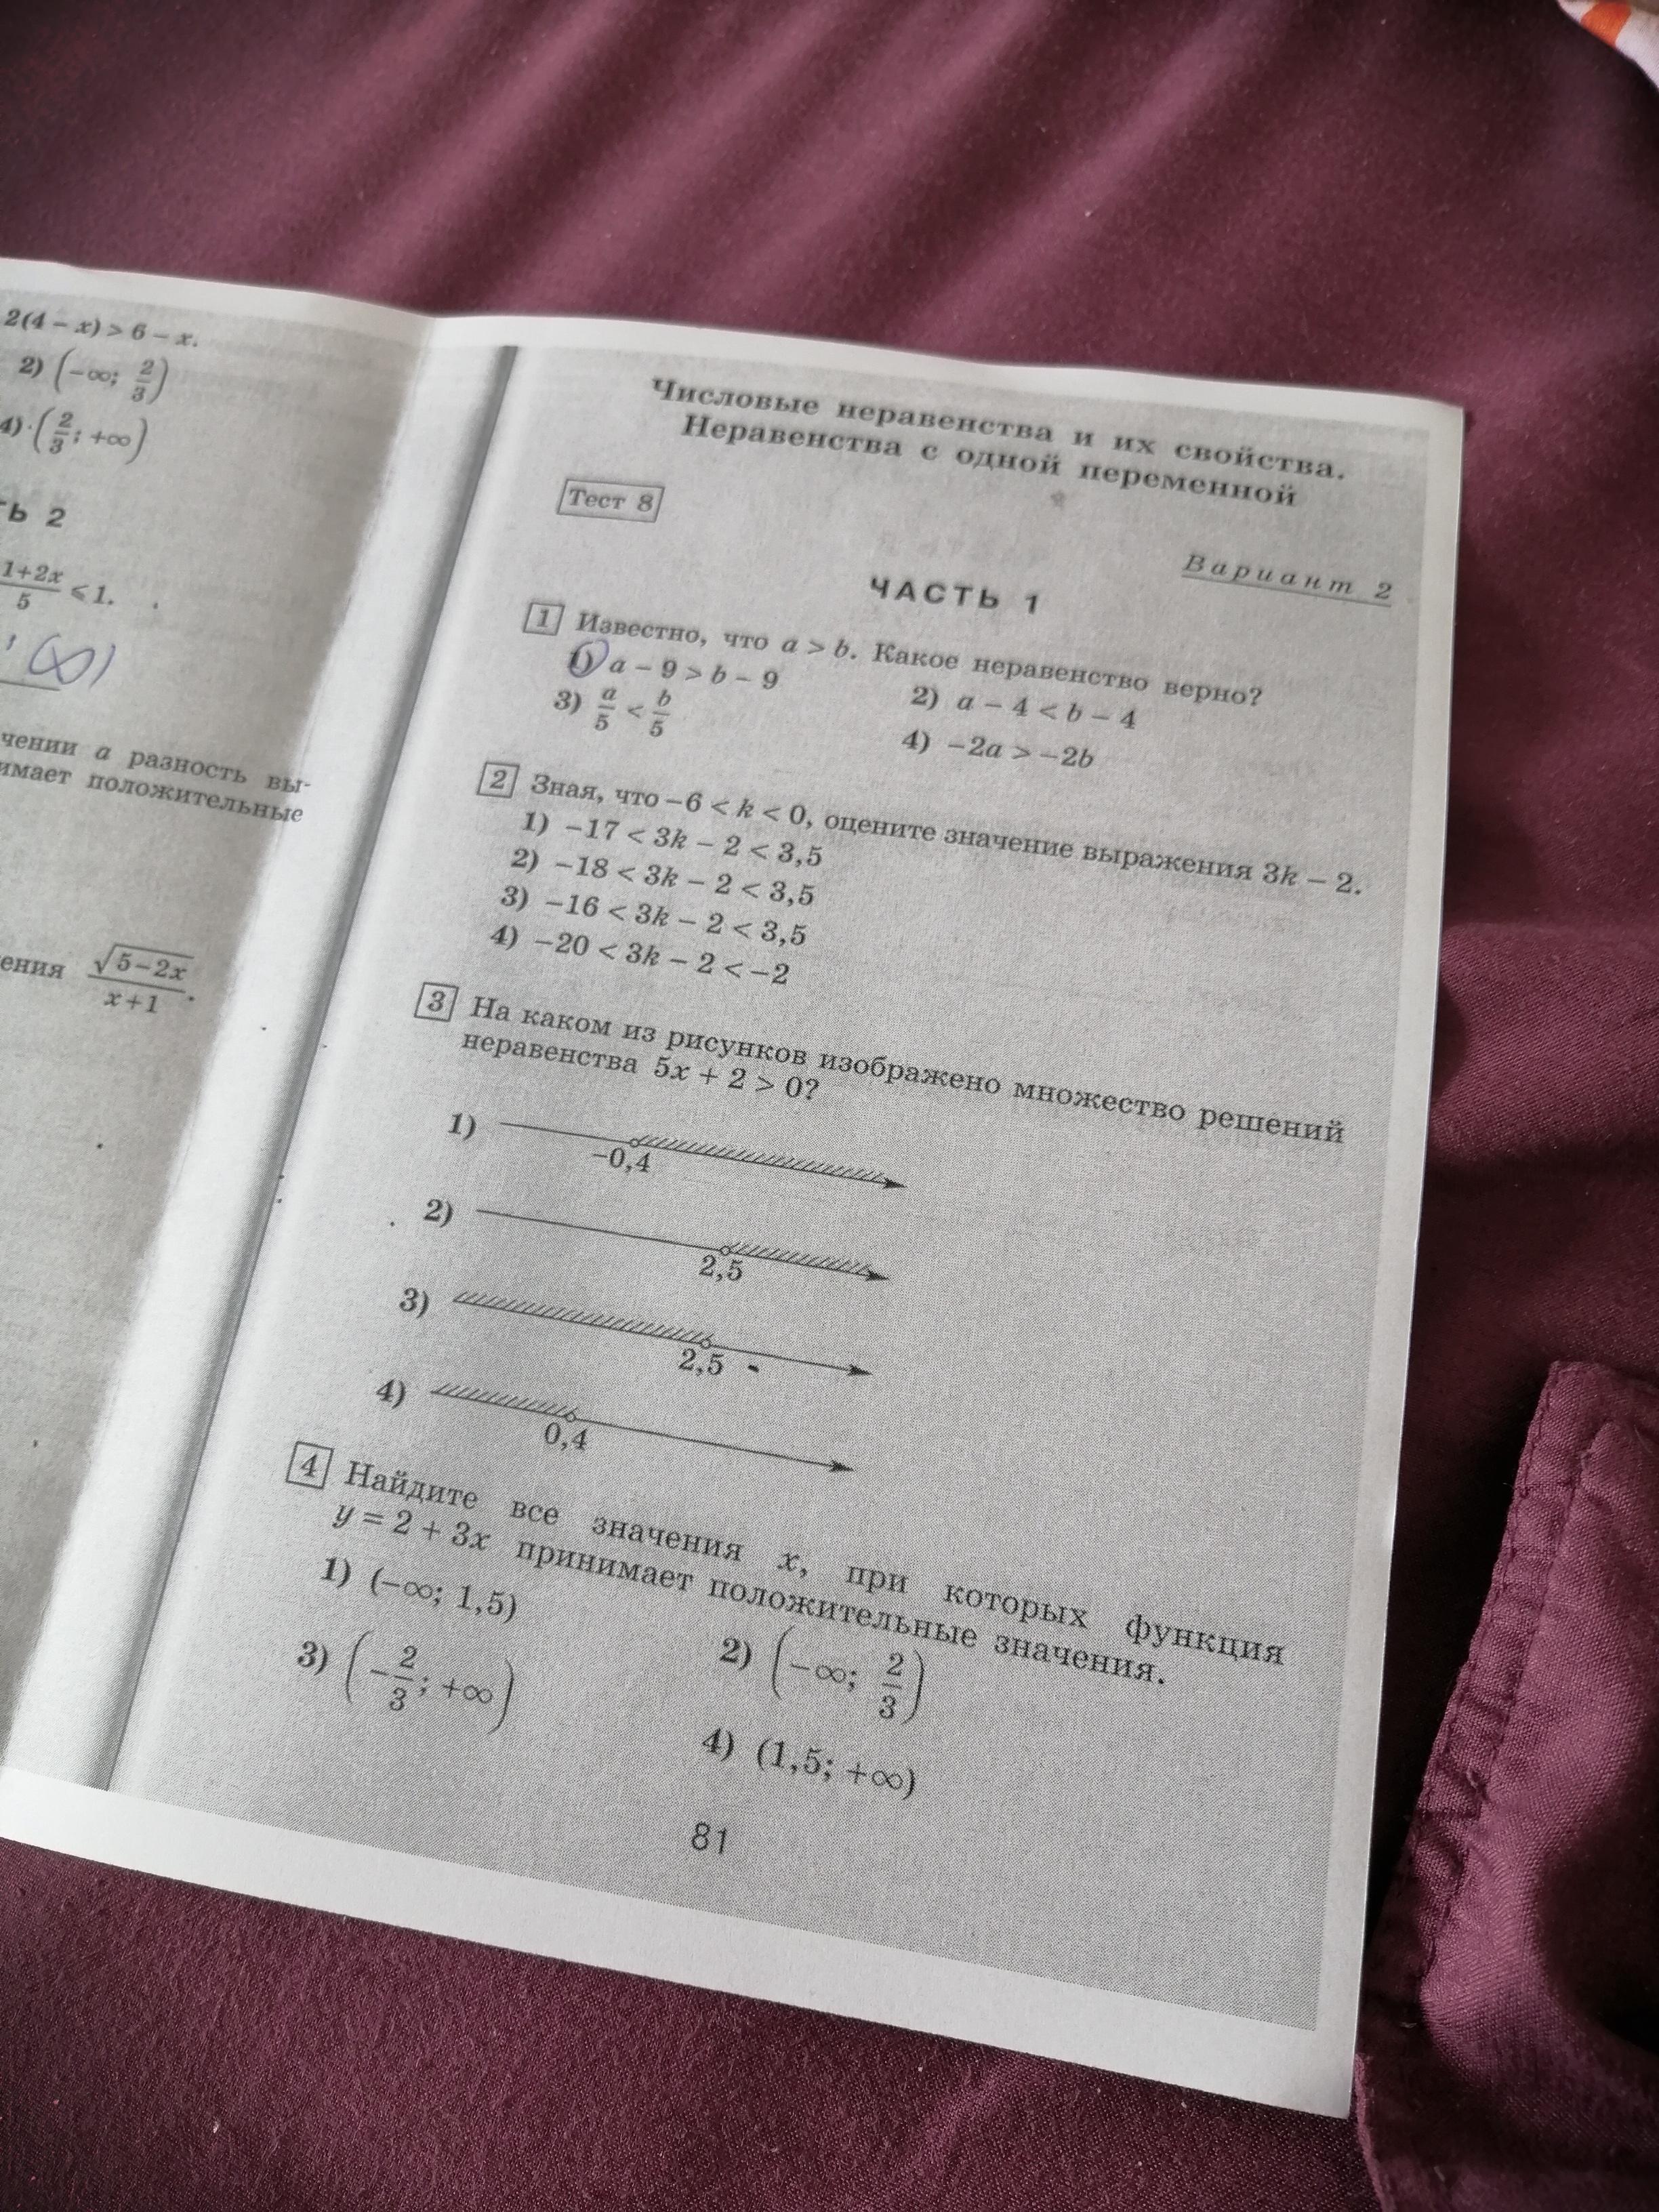 2(4 – x) > 6 – x.
2) (–∞; 2/3)
4) (2/3; +∞)
ТЬ 2
1+2x/5 ⩽ 1.
чении a разность вы-
имает положительные
ения √5–2x/x+1.
Числовые неравенства и их свойства.
Неравенства с одной переменной
Тест 8
Вариант 2
ЧАСТЬ 1
1 Известно, что a > b. Какое неравенство верно?
1) a – 9 > b – 9
2) a – 4 < b – 4
3) a/5 < b/5
4) –2a > –2b
2 Зная, что –6 < k < 0, оцените значение выражения 3k – 2.
1) –17 < 3k – 2 < 3,5
2) –18 < 3k – 2 < 3,5
3) –16 < 3k – 2 < 3,5
4) –20 < 3k – 2 < –2
3 На каком из рисунков изображено множество решений
неравенства 5x + 2 > 0?
1)
–0,4
2)
2,5
3)
2,5
4)
0,4
4 Найдите все значения x, при которых функция
y = 2 + 3x принимает положительные значения.
1) (–∞; 1,5)
2) (–∞; 2/3)
3) (–2/3; +∞)
4) (1,5; +∞)
81